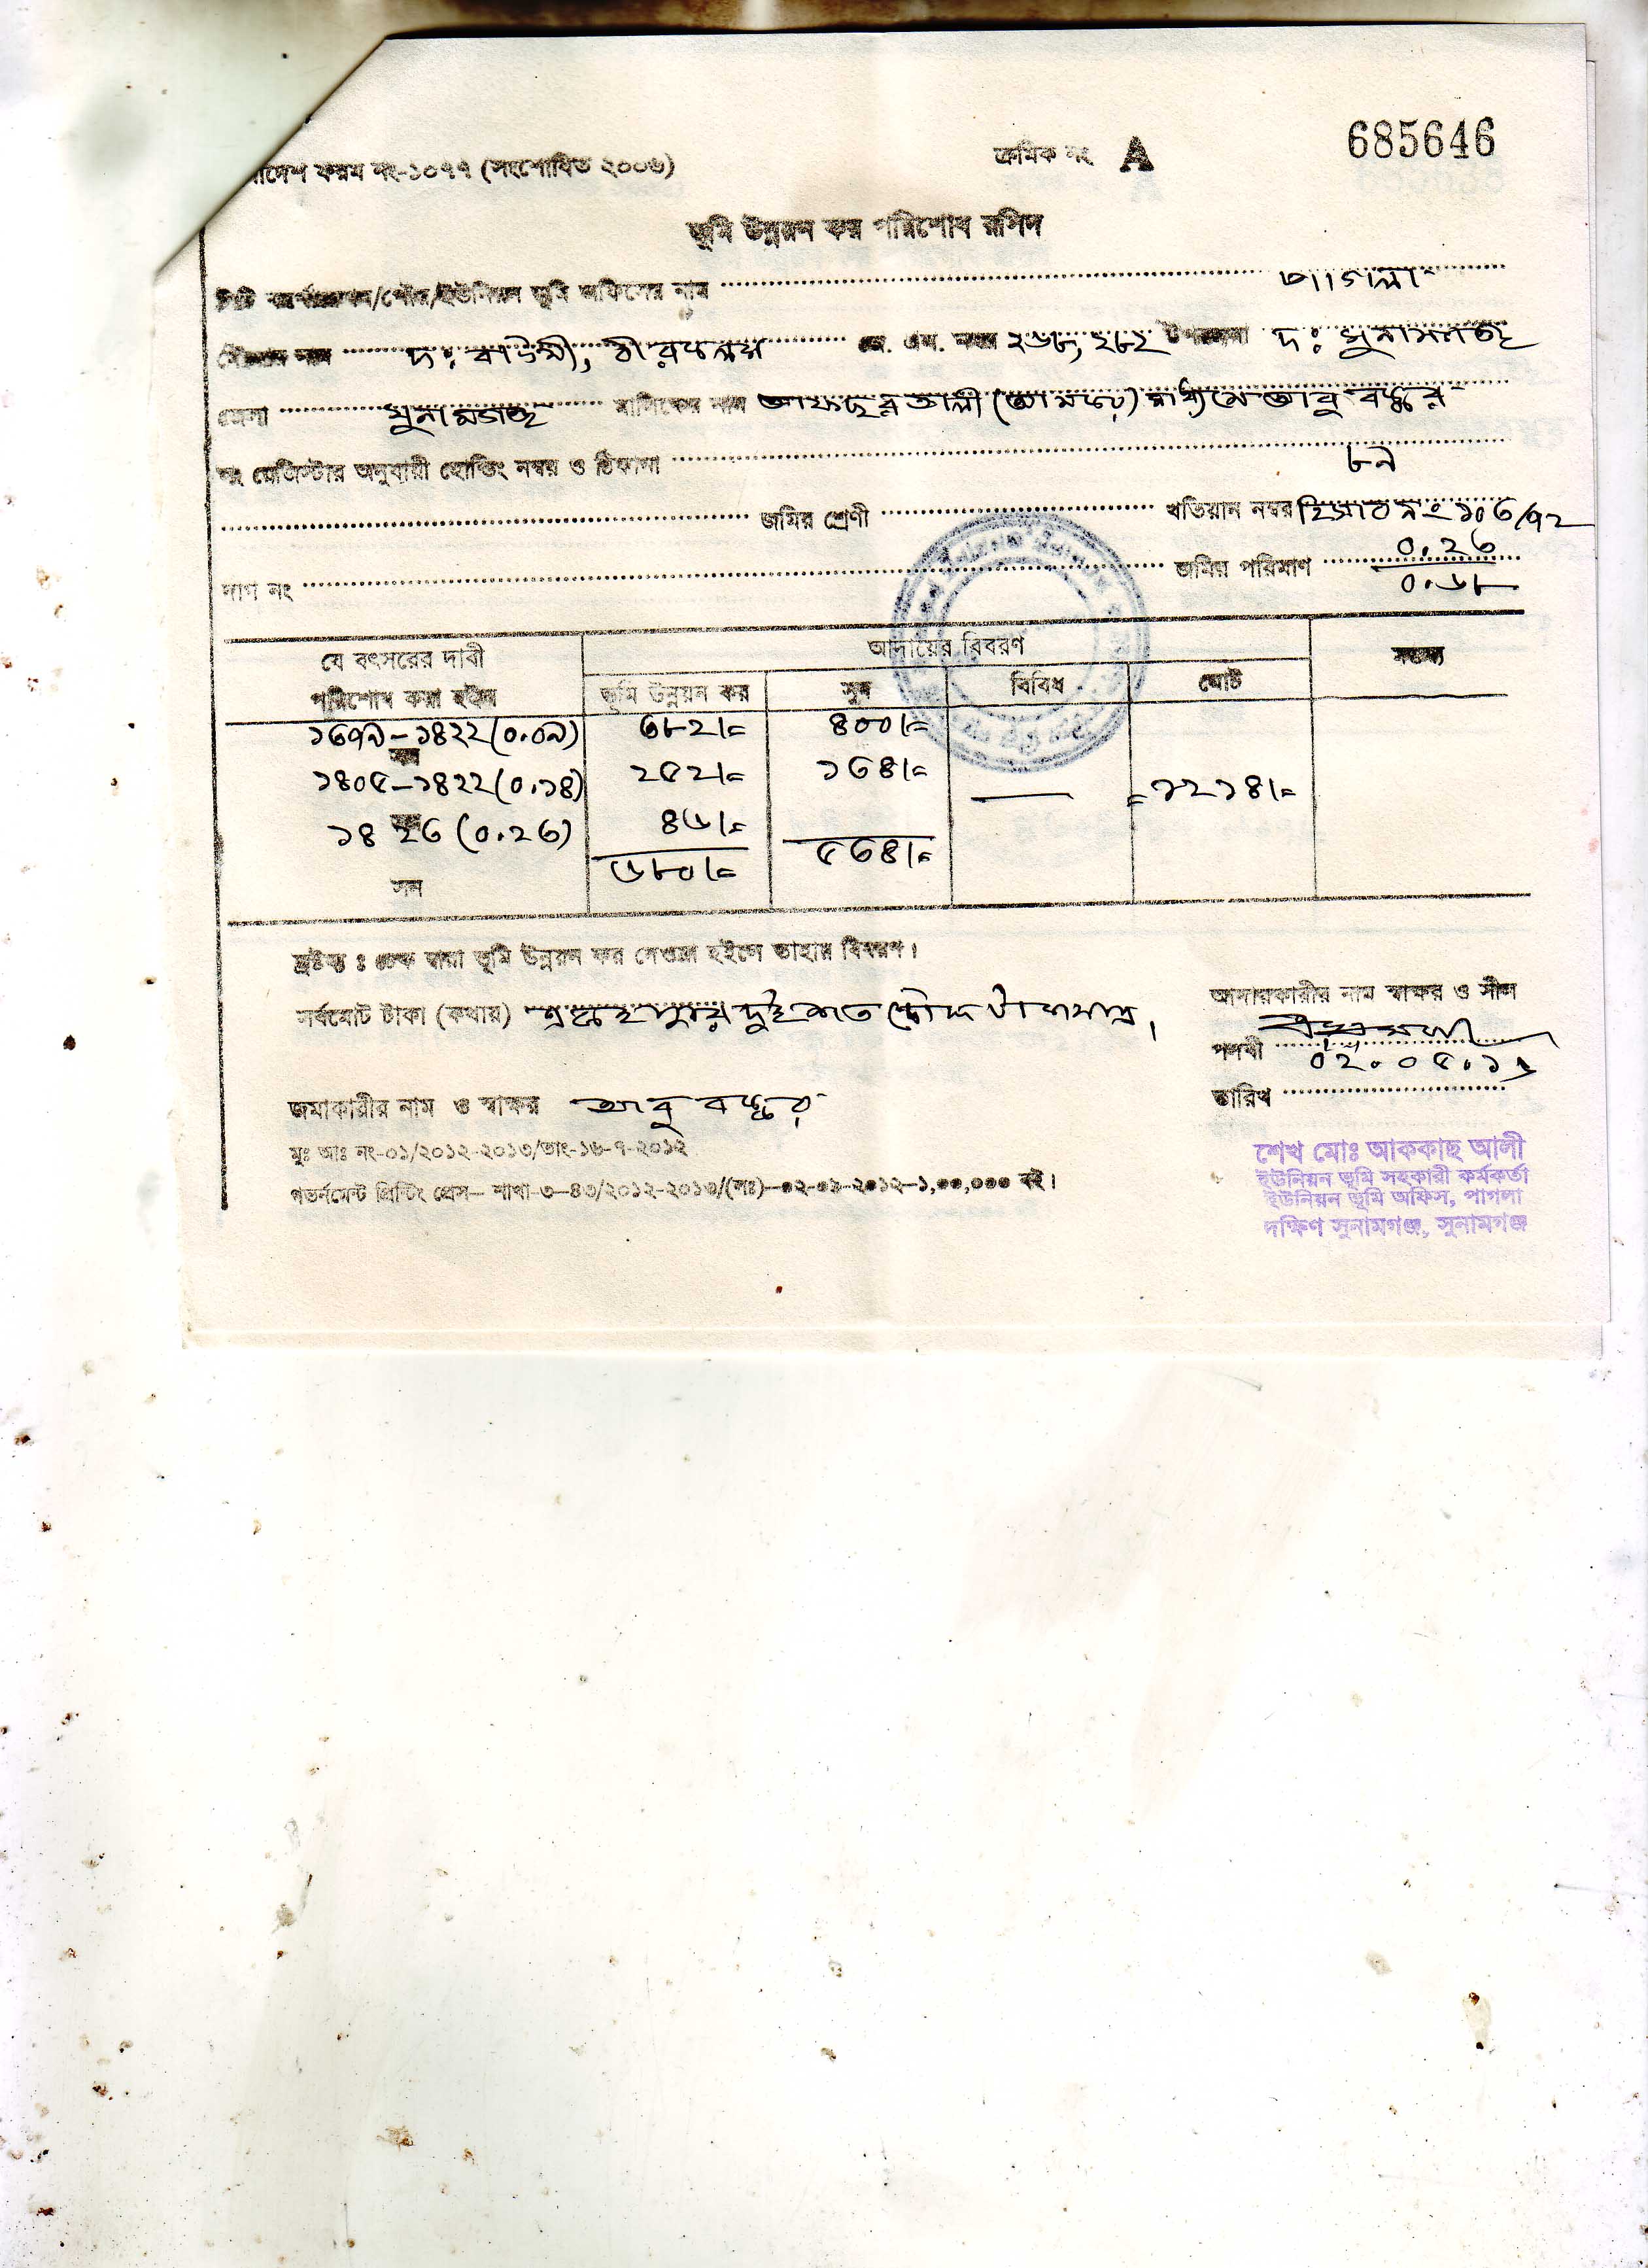 ক্রমিক নং A 685646
বাংলাদেশ ফরম নং-১০৭৭ (সংশোধিত ২০০৬)
ভূমি উন্নয়ন কর পরিশোধ রসিদ
সিটি কর্পোরেশন/পৌর/ইউনিয়ন ভূমি অফিসের নাম পাগলা
মৌজার নাম দঃ জে. এল. নম্বর ২৬৮, ২৮২ উপজেলা দঃ সুনামগঞ্জ
জেলা সুনামগঞ্জ মালিকের নাম আফছর আলী মাধ্যমে আবু বক্কর
নং রেজিস্টার অনুযায়ী হোল্ডিং নম্বর ও ঠিকানা
জমির শ্রেণী খতিয়ান নম্বর হিসাব নং ১০৩/৭২
দাগ নং জমির পরিমাণ ০.২৩
০.৬৮
যে বৎসরের দাবী আদায়ের বিবরণ মন্তব্য
পরিশোধ করা হইল ভূমি উন্নয়ন কর সুদ বিবিধ মোট
১৩৭৯-১৪২২(০.০৯) ৩৮২/= ৪০০/=
সন
১৪০৫-১৪২২(০.১৪) ২৫২/= ১৩৪/= = ১২১৪/=
সন
১৪২৩ (০.২৩) ৪৬/=
৬৮০/= ৫৩৪/=
সন
দ্রষ্টব্য : চেক দ্বারা ভূমি উন্নয়ন কর দেওয়া হইলে তাহার বিবরণ।
আদায়কারীর নাম স্বাক্ষর ও সীল
সর্বমোট টাকা (কথায়) এক হাজার দুই শত চৌদ্দ টাকা মাত্র।
পদবী ০২.০৫.১৬
তারিখ
জমাকারীর নাম ও স্বাক্ষর আবু বক্কর
মুঃ আঃ নং-০১/২০১২-২০১৩/তাং-১৬-৭-২০১২
গভর্নমেন্ট প্রিন্টিং প্রেস— শাখা-৩-৪৩/২০১২-২০১৩/(লঃ)—০২-০৯-২০১২—১,০০,০০০ বই।
শেখ মোঃ আককাছ আলী
ইউনিয়ন ভূমি সহকারী কর্মকর্তা
ইউনিয়ন ভূমি অফিস, পাগলা
দক্ষিণ সুনামগঞ্জ, সুনামগঞ্জ